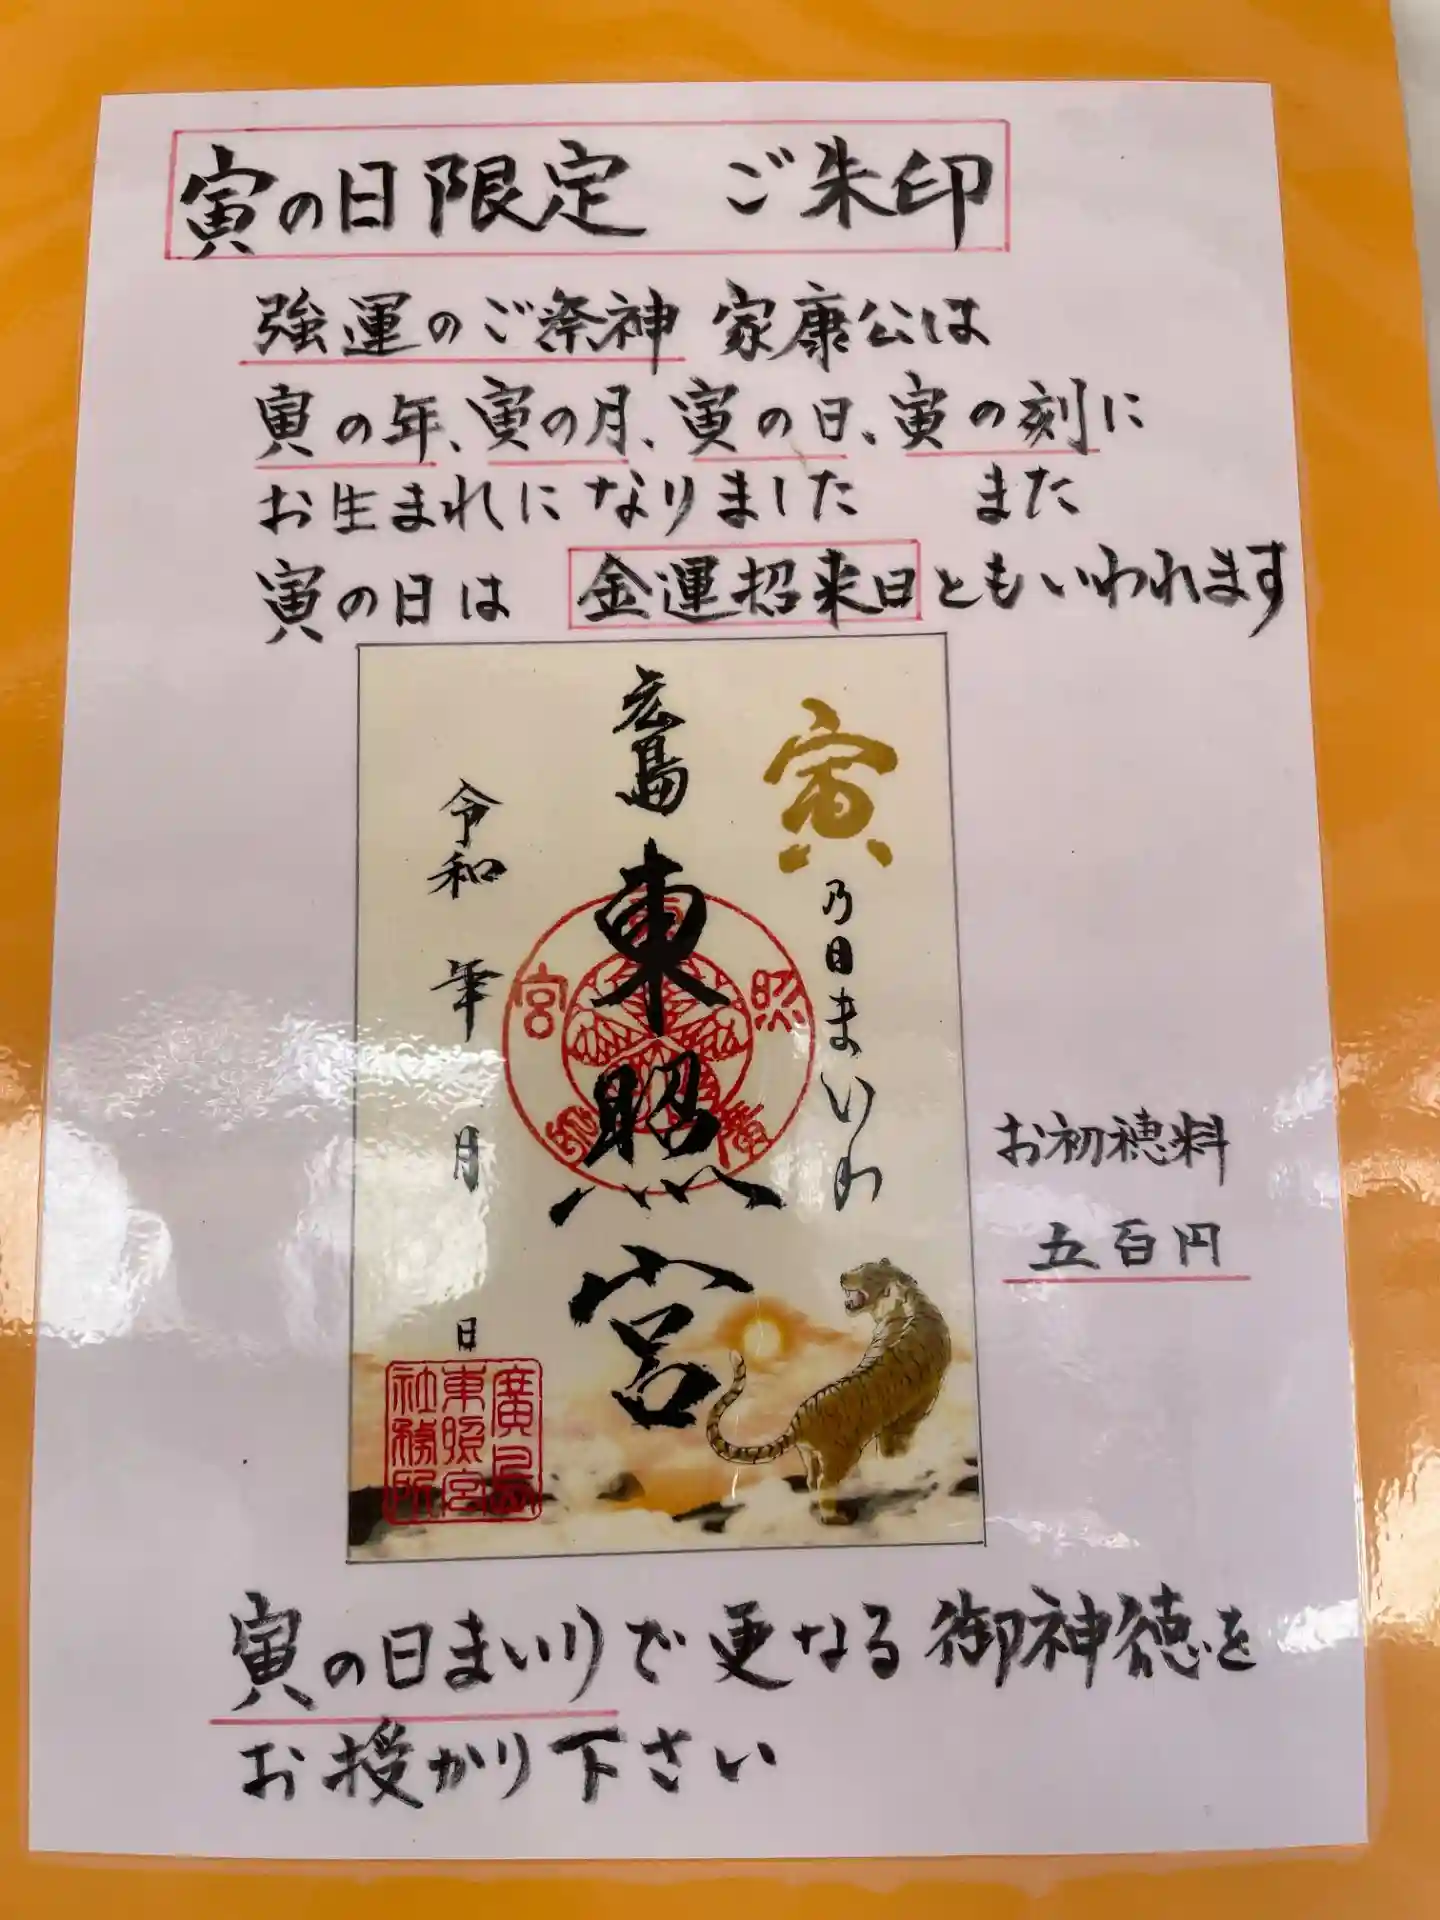 寅の日限定 ご朱印
強運のご祭神 家康公は
寅の年、寅の月、寅の日、寅の刻に
お生まれになりました また
寅の日は 金運招来日ともいわれます
寅乃日まいり
広島東照宮
令和 年 月 日
東照宮廣島
廣島東照宮社務所
お初穂料
五百円
寅の日まいりで更なる御神徳を
お授かり下さい